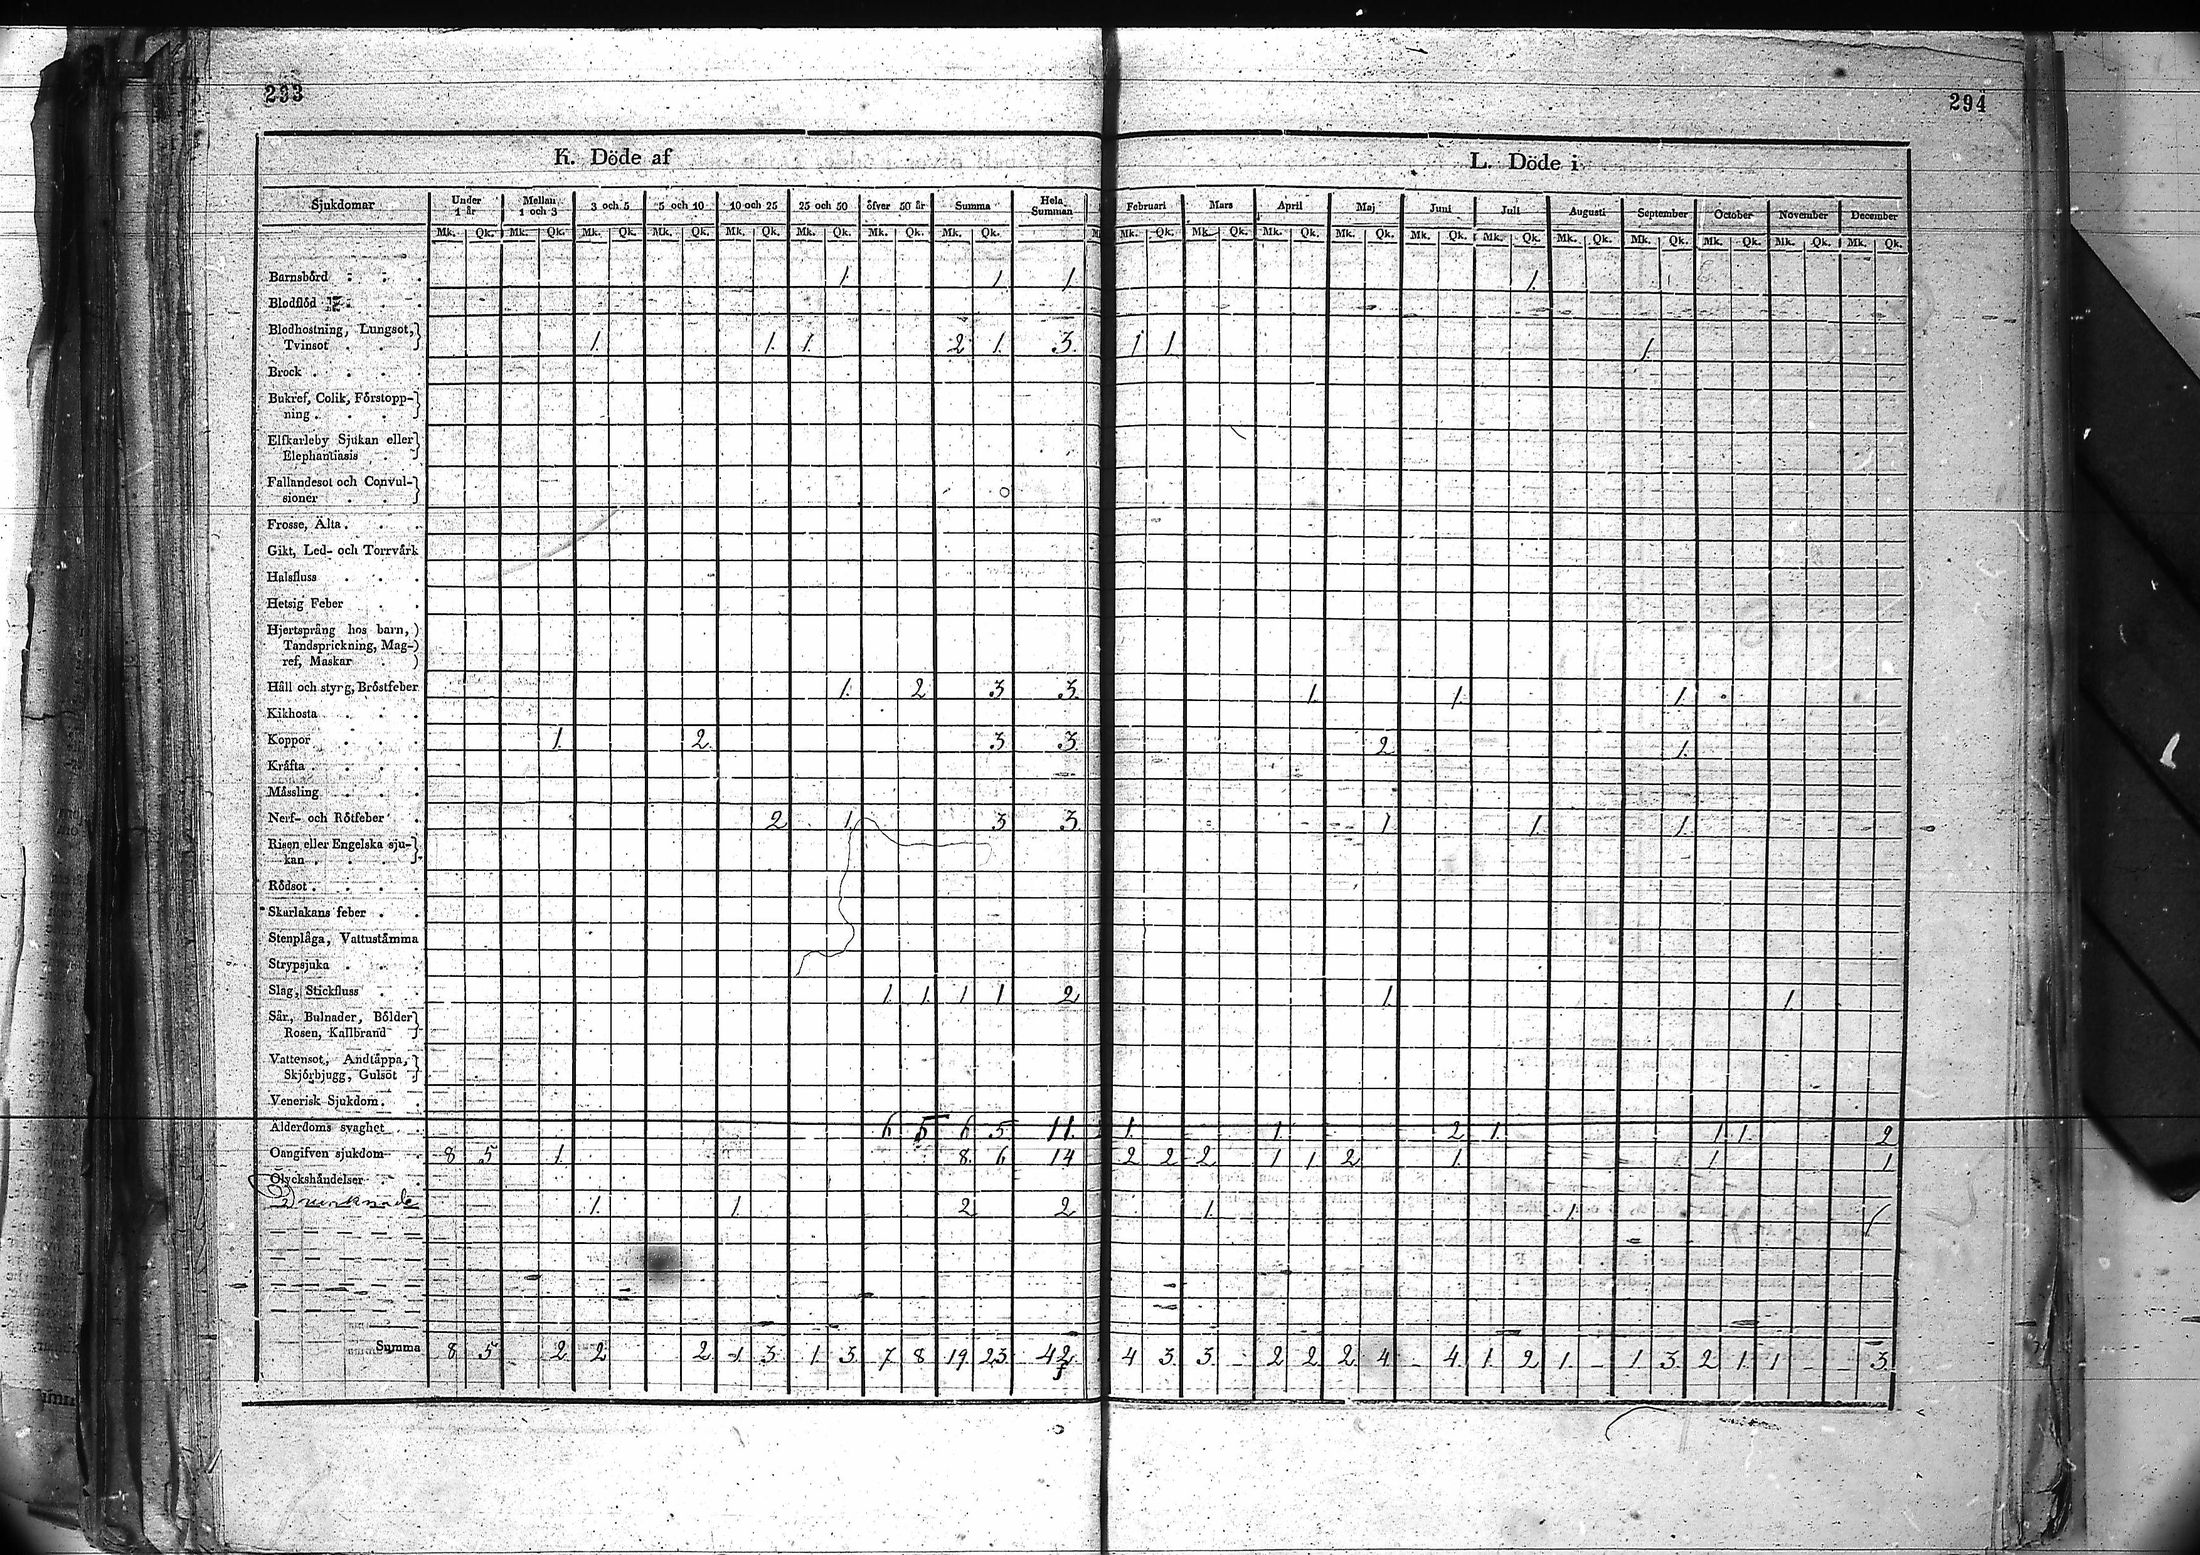 293
294
K. Döde af
L. Döde i
Sjukdomar Under 1 år Mellan 1 och 3 3 och 5 5 och 10 10 och 25 25 och 50 öfver 50 år Summa Hela Summan Februari Mars April Maj Juni Juli Augusti September October November December
Mk. Qk. Mk. Qk. Mk. Qk. Mk. Qk. Mk. Qk. Mk. Qk. Mk. Qk. Mk. Qk. Mk. Qk. Mk. Qk. Mk. Qk. Mk. Qk. Mk. Qk. Mk. Qk. Mk. Qk. Mk. Qk. Mk. Qk. Mk. Qk. Mk. Qk.
Barnsbörd 1 1 1 1.
Blodflöd
Blodhostning, Lungsot,
Tvinsot 1. 1. 1. 2 1. 3. 1 1 1.
Brock
Bukref, Colik, Förstopp-
ning
Elfkarleby Sjukan eller
Elephantiasis
Fallandesot och Convul-
sioner
Frosse, Älta
Gikt, Led- och Torrvärk
Halsfluss
Hetsig Feber
Hjertsprång hos barn,
Tandsprickning, Mag-
ref, Maskar
Håll och styng, Bröstfeber 1. 2 3 3. 1. 1. 1.
Kikhosta
Koppor 1. 2 3 3. 2 1.
Kräfta
Mässling
Nerf- och Rötfeber 2 1. 3 3. 1 1. 1.
Risen eller Engelska sju-
kan
Rödsot
Skarlakans feber
Stenplåga, Vattustämma
Strypsjuka
Slag, Stickfluss 1. 1. 1 1 2 1. 1.
Sår, Bulnader, Bölder
Rosen, Kallbrand
Vattensot, Andtäppa,
Skjörbjugg, Gulsot
Venerisk Sjukdom
Ålderdoms svaghet 6 5 6 5 11. 1. 1. 2 1. 1. 1. 2
Oangifven sjukdom 8 5 1. 8. 6 14 2 2 2 1 1 2 1. 1 1
Olyckshändelser
Drunknade 1. 1. 2 2 1. 1.
Summa 8 5 2 2 2 1 3. 1. 3. 7 8 19. 23. 42 4 3. 3. - 2 2 2 4 - 4. 1. 2 1. - 1 3. 2 1. 1 - - 3.